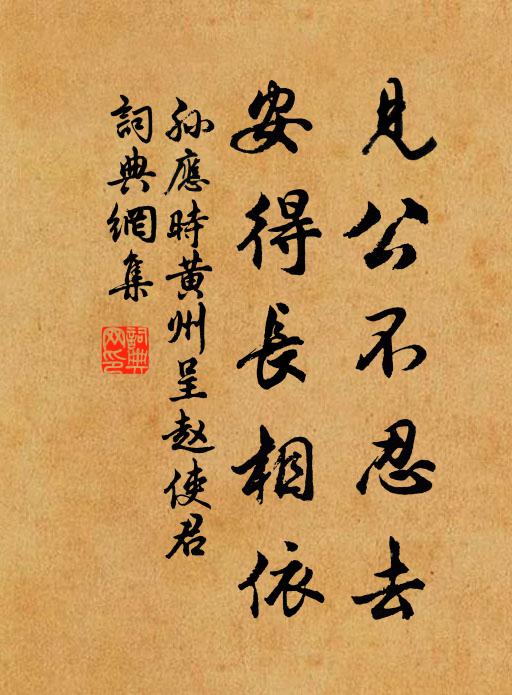 見公不忍去
安得長相依
孫應時黄州呈赵使君
詞典網集
詞典
网印